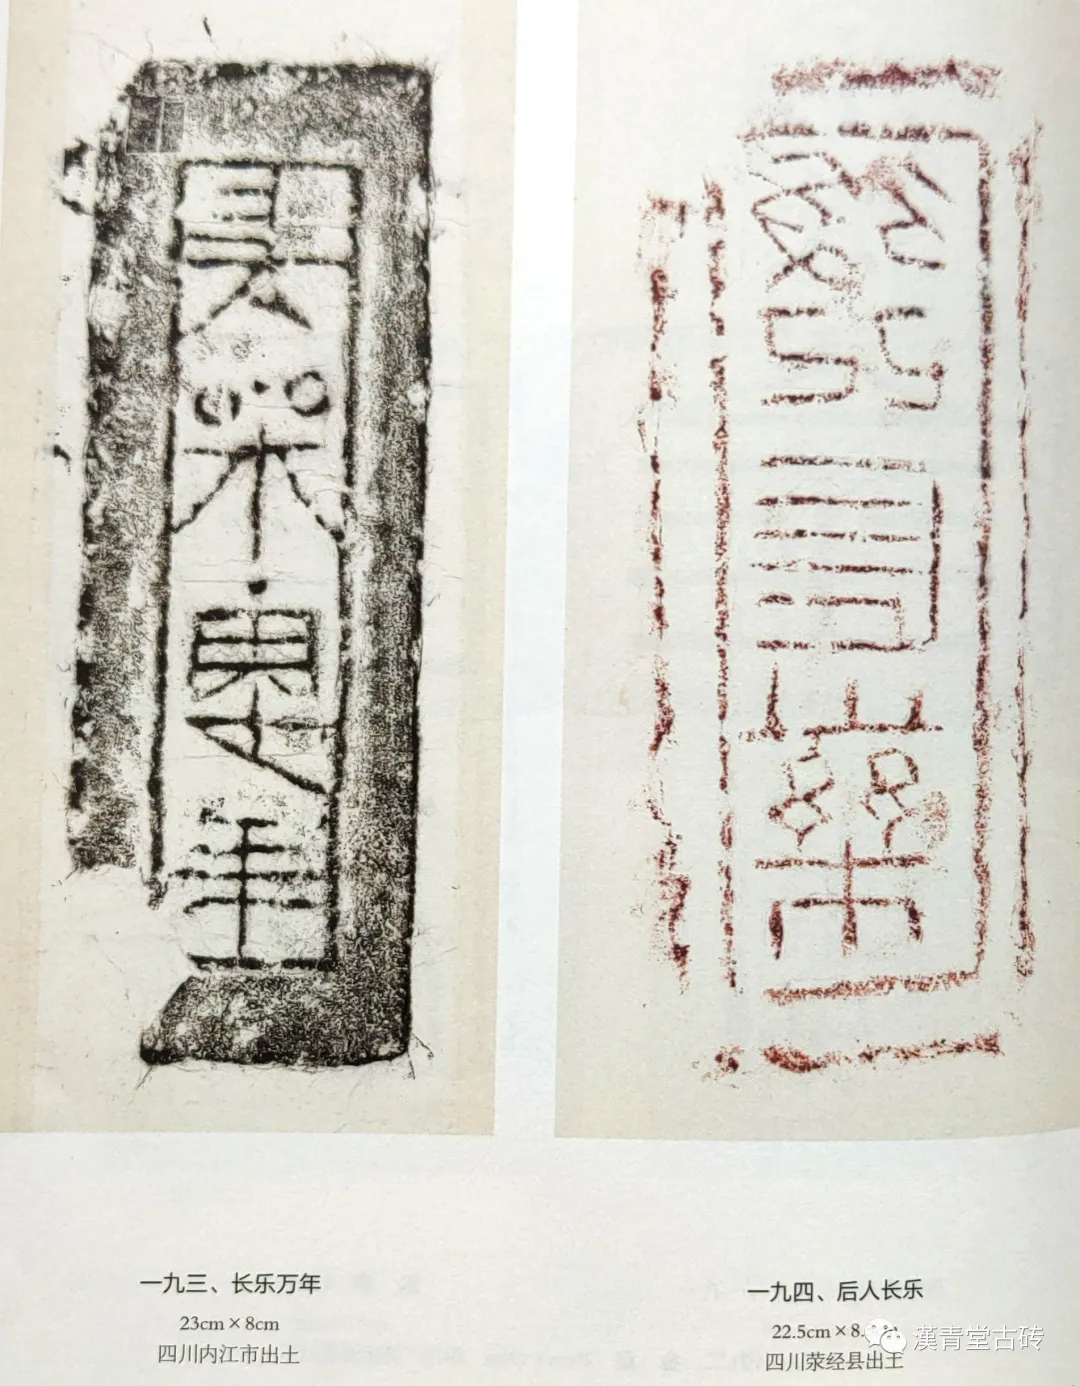 長樂萬年
後人長樂
一九三、长乐万年
23cm×8cm
四川内江市出土
一九四、后人长乐
22.5cm×8.
四川荥经县出土
漢青堂古砖